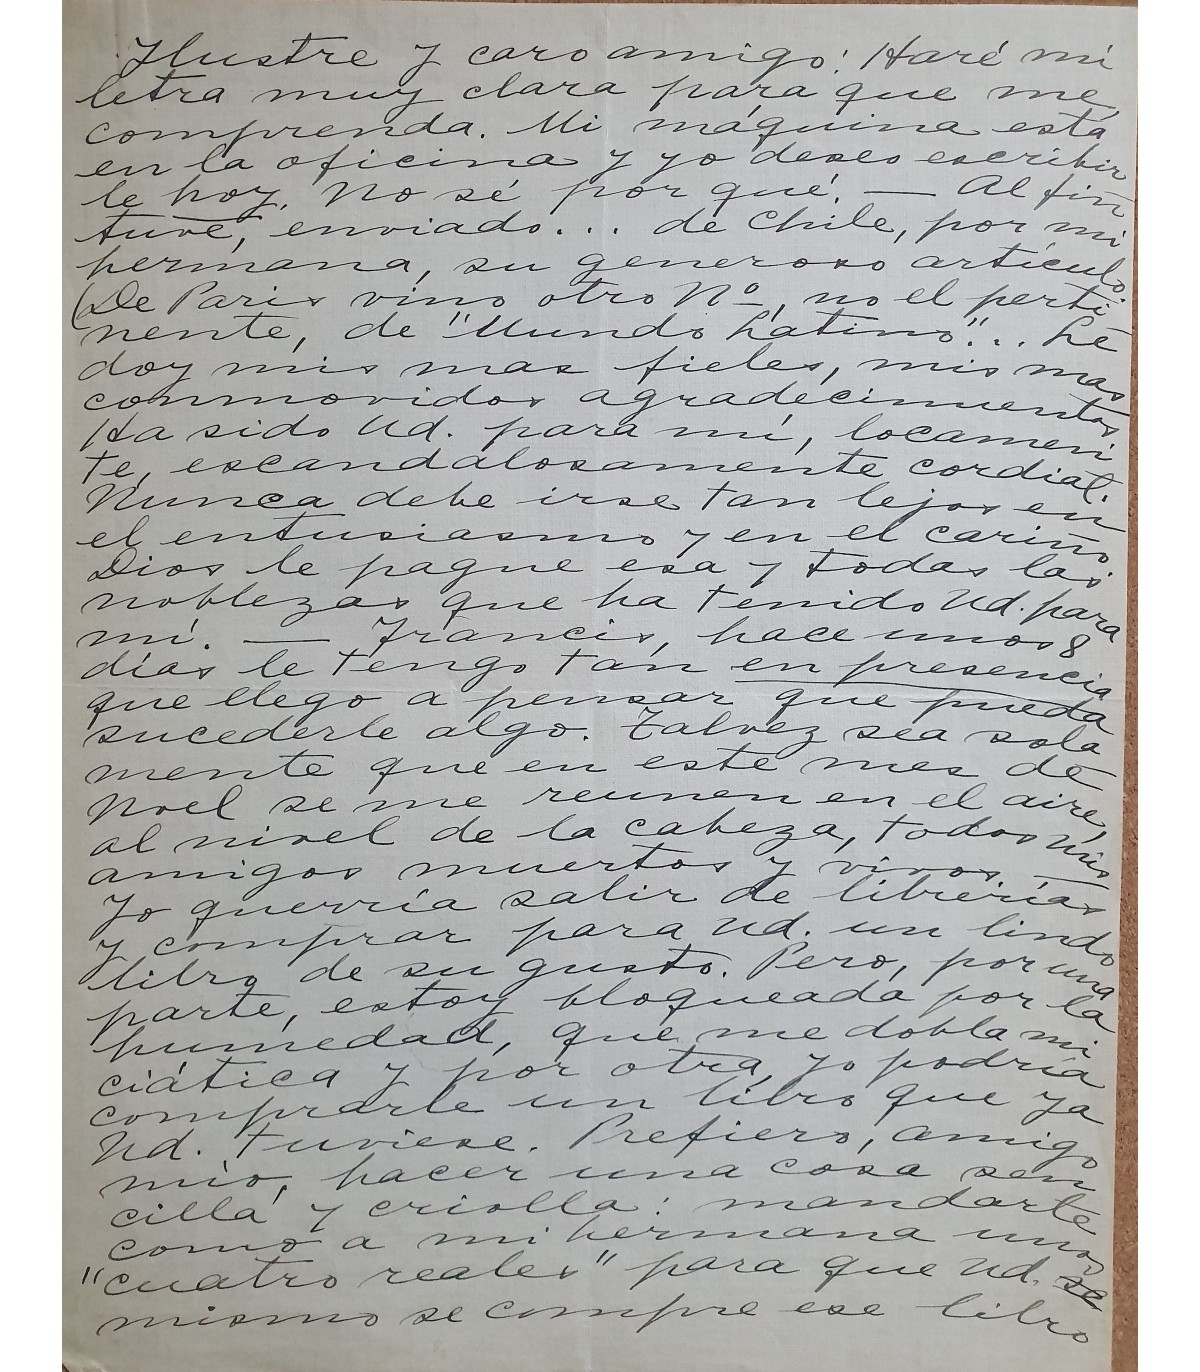 Ilustre y caro amigo: Haré mi
letra muy clara para que me
comprenda. Mi máquina está
en la oficina y yo deseo escribir
le hoy. No sé por qué. — Al fin
tuve, enviado... de Chile, por mi
hermana, su generoso artículo.
(De Paris vino otro Nº, no el perti
nente, de "Mundo Latino"... Le
doy mis mas fieles, mis mas
conmovidos agradecimientos
Ha sido Ud. para mí, locamen
te, escandalosamente cordial.
Nunca debe irse tan lejos en
el entusiasmo y en el cariño.
Dios le pague esa y todas las
noblezas que ha tenido Ud. para
mí. — Francis, hace unos 8
días le tengo tan en presencia
que llego a pensar que pueda
sucederle algo. Talvez sea sola
mente que en este mes de
Noel se me reunen en el aire,
al nivel de la cabeza, todos mis
amigos muertos y vivos —
Yo querría salir de librerías
y comprar para Ud. un lindo
libro de su gusto. Pero, por una
parte, estoy bloqueada por la
humedad, que me dobla mi
ciática y por otra, yo podría
comprarle un libro que ya
Ud. tuviese. Prefiero, amigo
mío, hacer una cosa sen
cilla y criolla: mandarte
como a mi hermana unos
"cuatro reales" para que Ud. se
mismo se compre ese libro